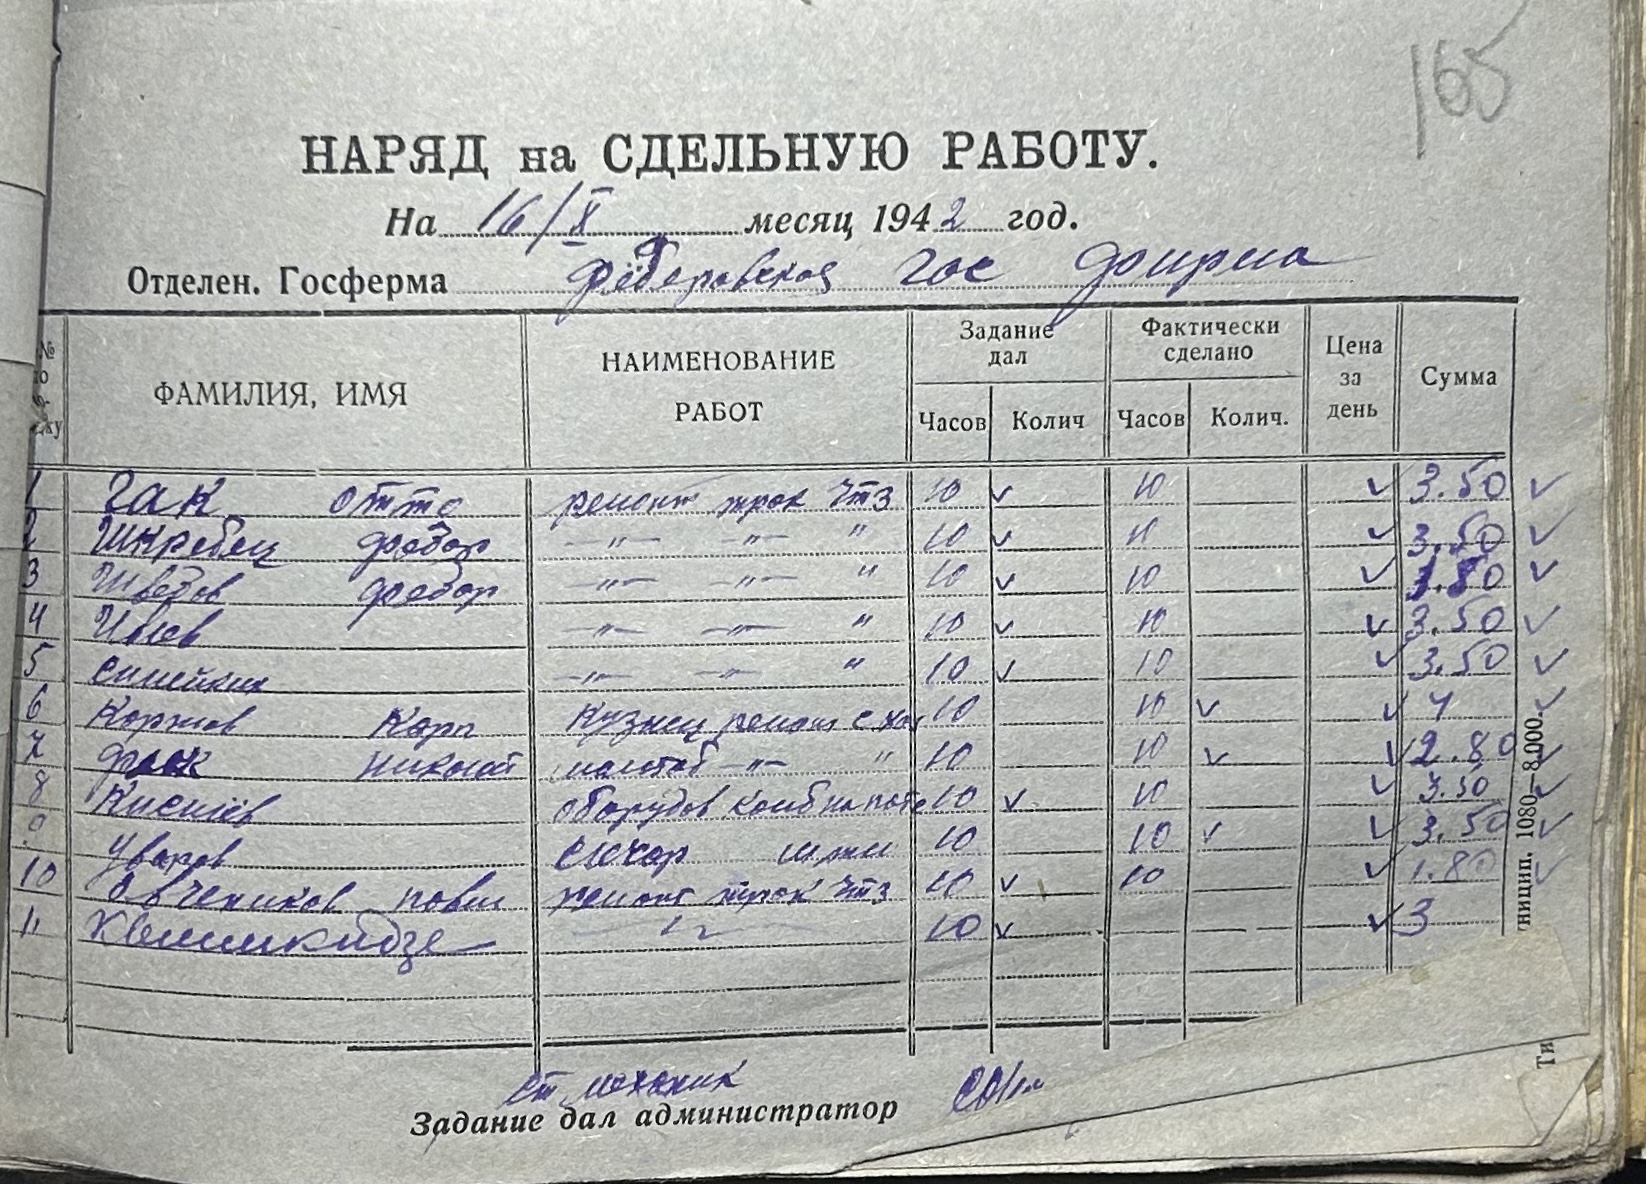 165
НАРЯД на СДЕЛЬНУЮ РАБОТУ.
На 16/X месяц 1942 год.
Отделен. Госферма Фёдеровская гос ферма
№ по ФАМИЛИЯ, ИМЯ НАИМЕНОВАНИЕ РАБОТ Задание дал Часов Колич Фактически сделано Часов Колич. Цена за день Сумма
1 Гак Отто ремонт трак ЧТЗ 10 v 10 v 3.50 v
2 Шкребец Федор —"— —"— " 10 v v 3.50 v
3 Шведов Федор —"— —"— " 10 v 10 v 1.80 v
4 —"— —"— " 10 v 10 v 3.50 v
5 Синейкин —"— —"— " 10 v 10 v 3.50 v
6 Коржов Карп кузнец ремонт с хоз 10 10 v v 4 v
7 Николай молотоб —"— " 10 10 v v 2.80 v
8 Киселёв оборудов комб на 10 v 10 v 3.50 v
9 Уваров 10 10 v v 3.50 v
10 Овчеников ремонт трак ЧТЗ 10 v 10 v 1.80 v
11 10 v v 3
ст механик
Задание дал администратор
ницип. 1080—8.000.
Ти